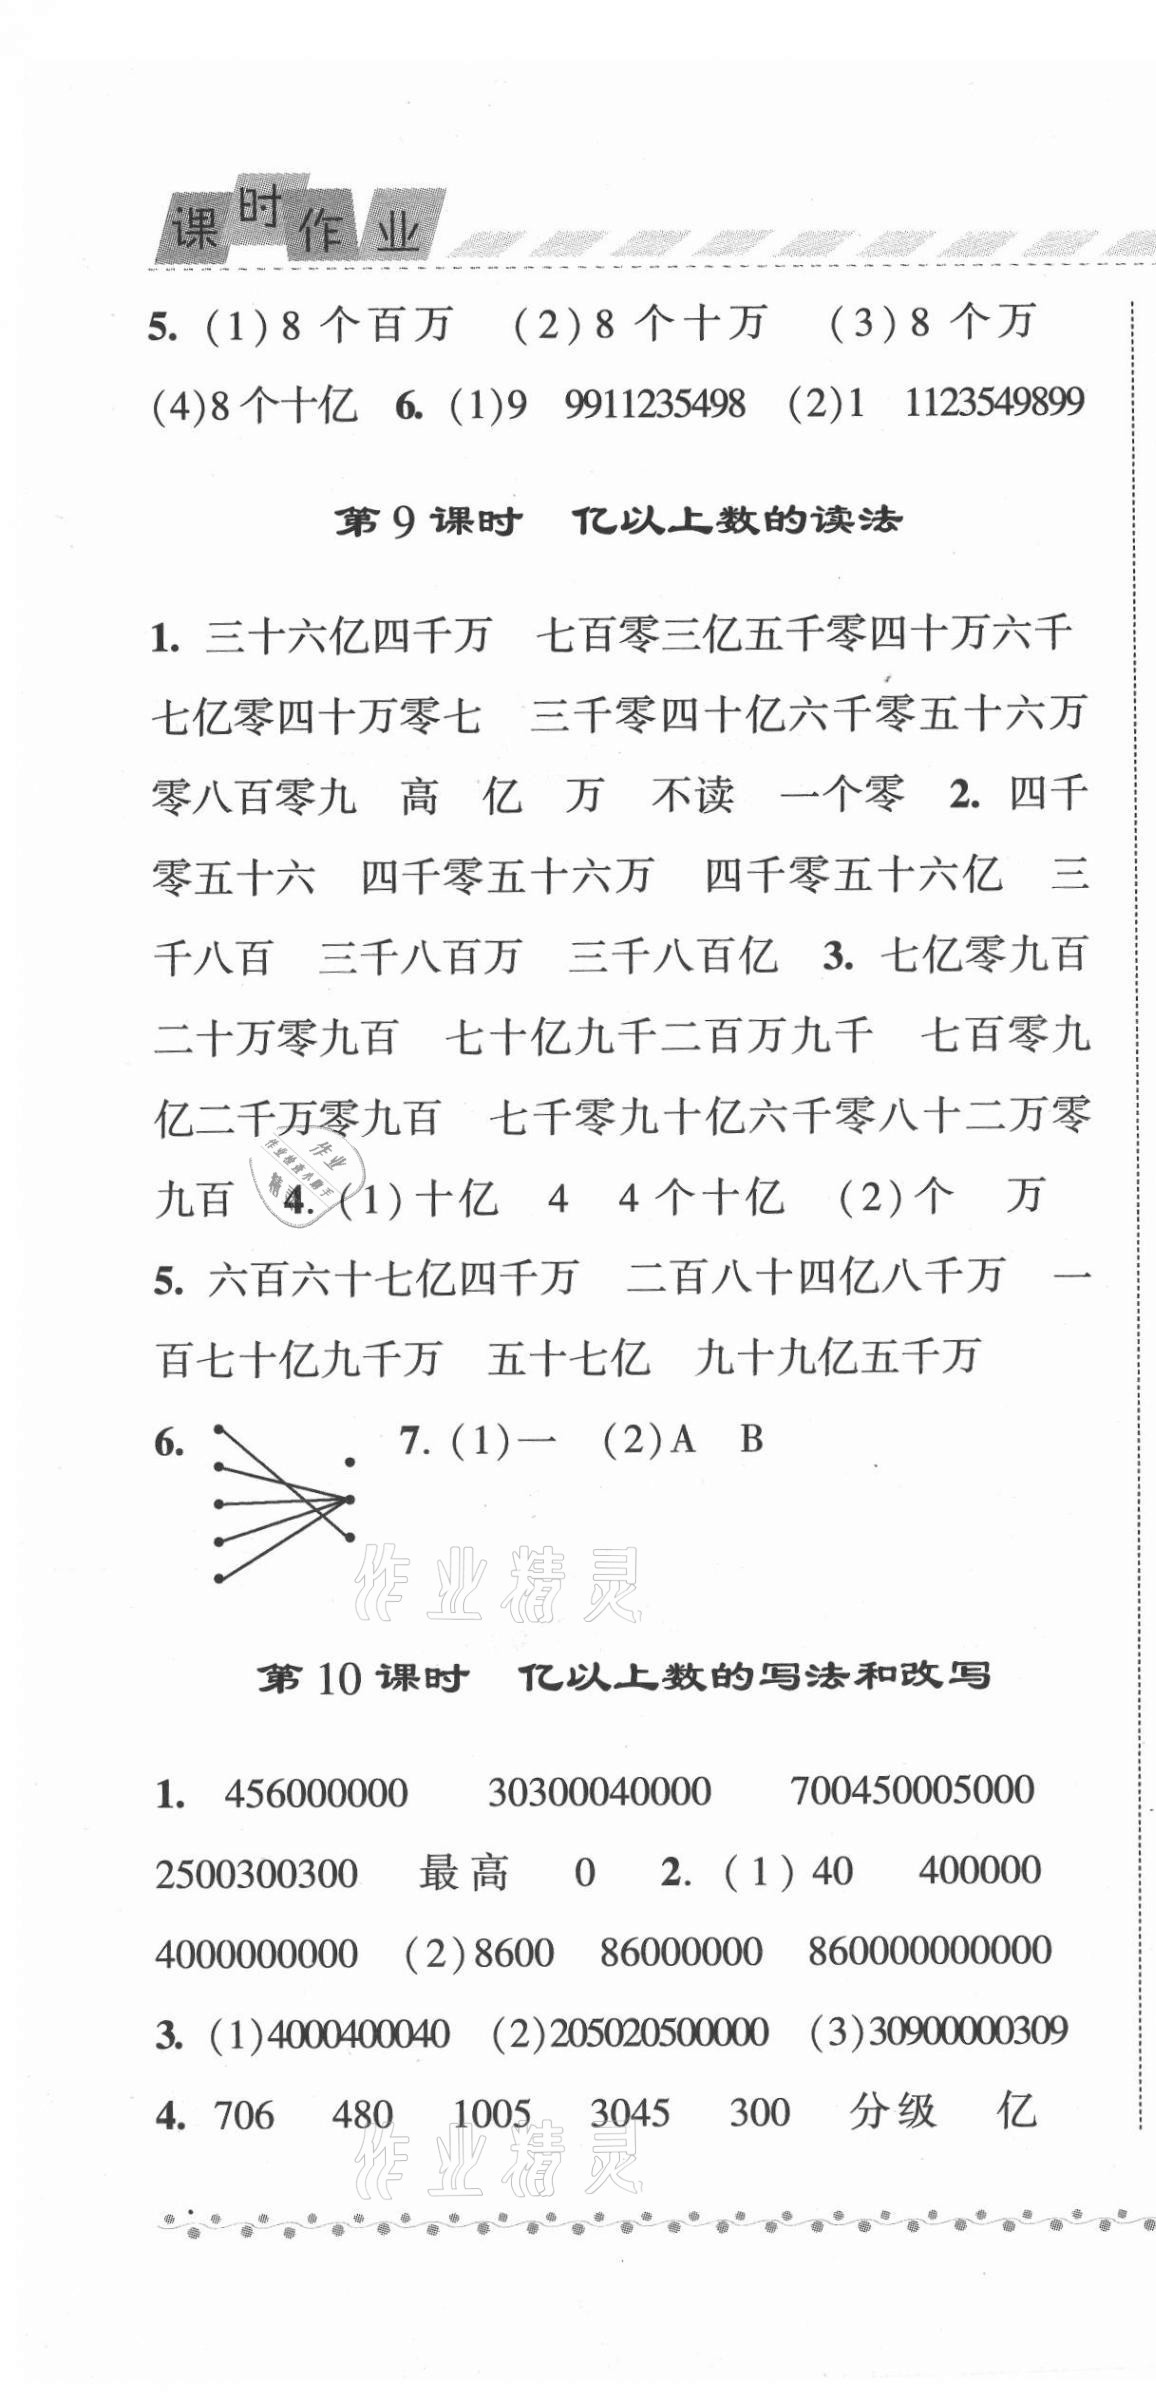 课时作业
5. (1)8 个百万 (2)8 个十万 (3)8 个万
(4)8 个十亿 6. (1)9 9911235498 (2)1 1123549899
第 9 课时 亿以上数的读法
1. 三十六亿四千万 七百零三亿五千零四十万六千
七亿零四十万零七 三千零四十亿六千零五十六万
零八百零九 高 亿 万 不读 一个零 2. 四千
零五十六 四千零五十六万 四千零五十六亿 三
千八百 三千八百万 三千八百亿 3. 七亿零九百
二十万零九百 七十亿九千二百万九千 七百零九
亿二千万零九百 七千零九十亿六千零八十二万零
九百 4. (1)十亿 4 4 个十亿 (2)个 万
作业
作业检查小助手
5. 六百六十七亿四千万 二百八十四亿八千万 一
百七十亿九千万 五十七亿 九十九亿五千万
6. 7. (1)一 (2)A B
作业精灵
第 10 课时 亿以上数的写法和改写
1. 456000000 30300040000 700450005000
2500300300 最高 0 2. (1) 40 400000
4000000000 (2)8600 86000000 860000000000
3. (1)4000400040 (2)205020500000 (3)30900000309
4. 706 480 1005 3045 300 分级 亿
作业精灵